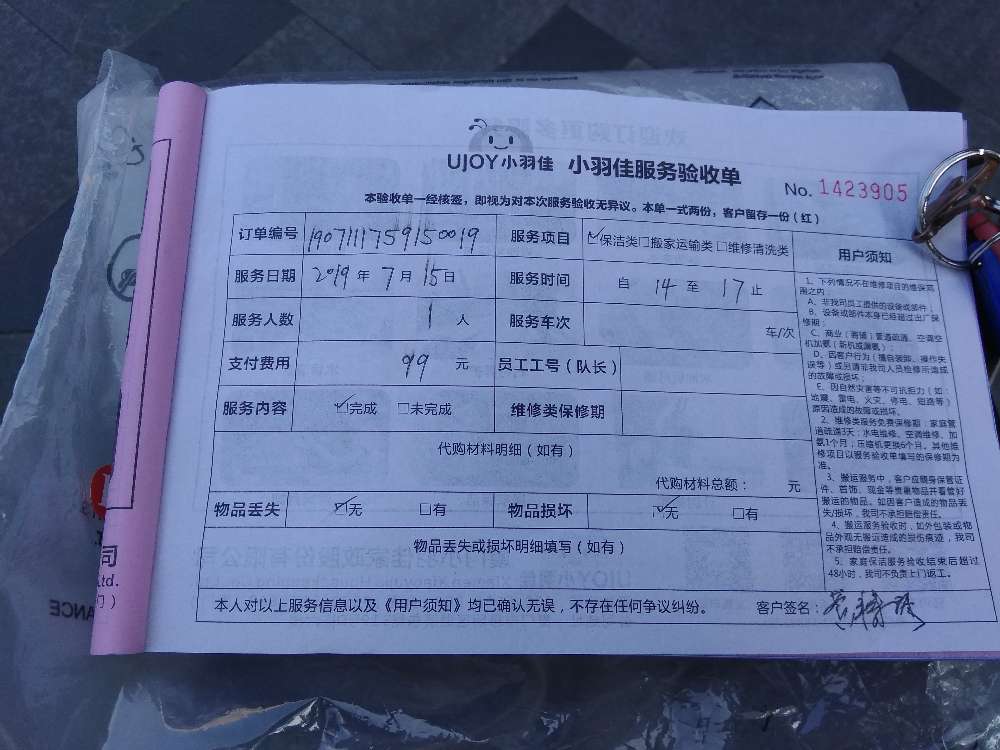 UJOY小羽佳 小羽佳服务验收单
No. 1423905
本验收单一经核签，即视为对本次服务验收无异议。本单一式两份，客户留存一份（红）
订单编号 1907111759150019 服务项目 ☑保洁类□搬家运输类□维修清洗类
服务日期 2019年7月15日 服务时间 自 14 至 17 止
服务人数 1 人 服务车次 车/次
支付费用 99 元 员工工号（队长）
服务内容 ☑完成 □未完成 维修类保修期
代购材料明细（如有）
代购材料总额： 元
物品丢失 ☑无 □有 物品损坏 ☑无 □有
物品丢失或损坏明细填写（如有）
本人对以上服务信息以及《用户须知》均已确认无误，不存在任何争议纠纷。 客户签名：
用户须知
1、下列情况不在维修项目的维保范
围之内：
A、非我司员工提供的设备或部件；
B、设备或部件本身已经超过出厂保
修期；
C、商业（商铺）管道疏通、空调空
机加氨（新机或漏氨）；
D、因客户行为（擅自装卸、操作失
误等）或另请非我司人员检修所造成
的故障或损坏；
E、因自然灾害等不可抗拒力（如：
地震、雷电、火灾、停电、短路等）
原因造成的故障或损坏。
2、维修类服务免费保修期：家庭管
道疏通3天；水电维修、空调维修、加
氨1个月；压缩机更换6个月。其他维
修项目以服务验收单填写的保修期为
准。
3、搬运服务中，客户应随身保管证
件、首饰、现金等贵重物品并看管好
搬运的物品。如因客户造成的物品丢
失/损坏，我司不承担赔偿责任。
4、搬运服务验收时，如外包装或物
品外观无搬运造成的损伤痕迹，我司
不承担赔偿责任。
5、家庭保洁服务验收结束后超过
48小时，我司不负责上门返工。
司
Ltd.
门）